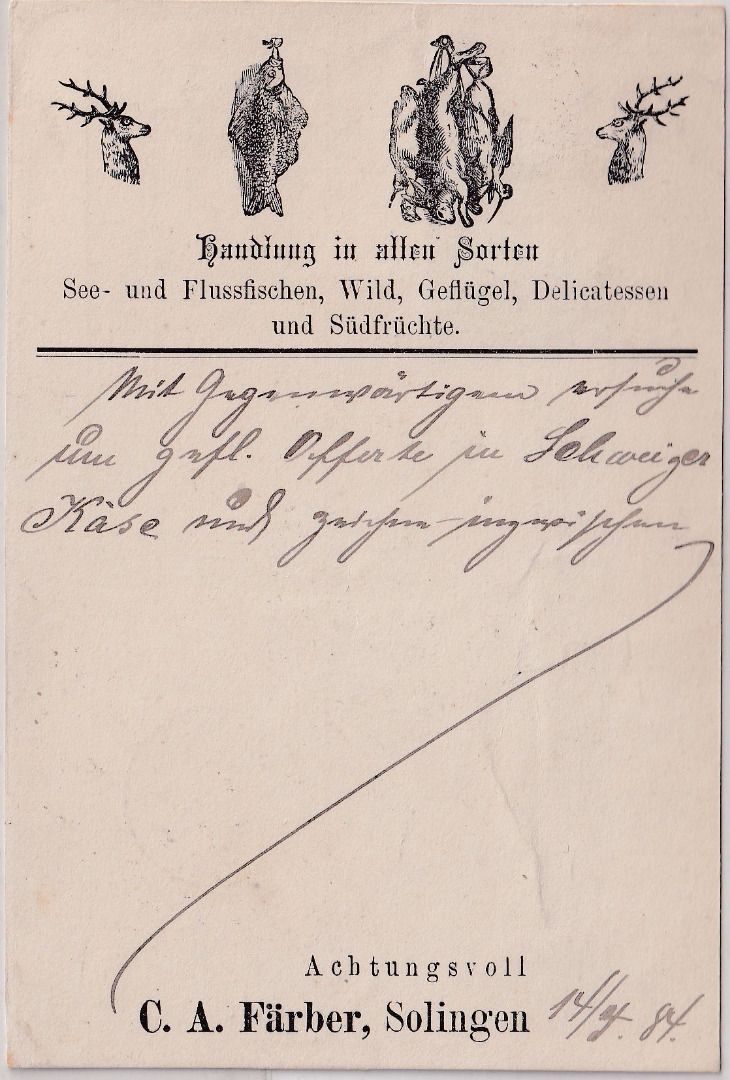 Handlung in allen Sorten
See- und Flussfischen, Wild, Geflügel, Delicatessen
und Südfrüchte.
Mit Gegenwärtigem ersuche
um gefl. Offerte in Schweizer
Käse und zeichne inzwischen
Achtungsvoll
C. A. Färber, Solingen 14/ 84.